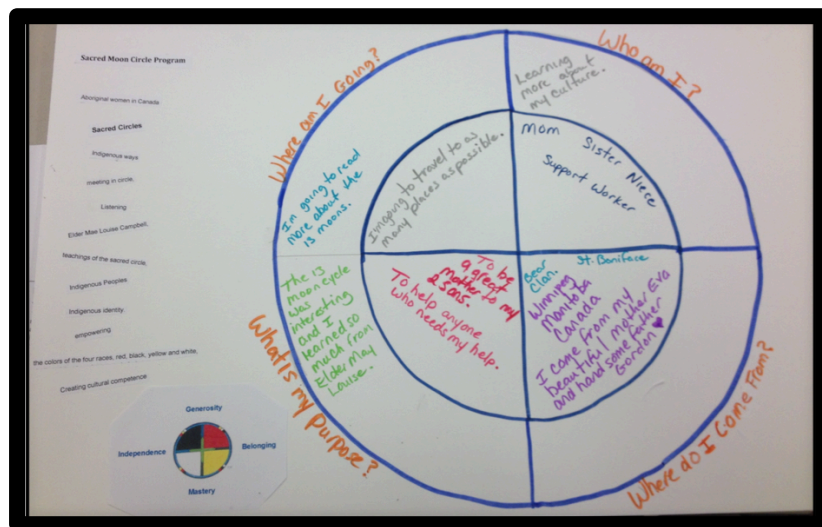 Sacred Moon Circle Program
Aboriginal women in Canada
Sacred Circles
Indigenous ways
meeting in circle,
Listening
Elder Mae Louise Campbell,
teachings of the sacred circle,
Indigenous Peoples,
Indigenous identity,
empowering
the colors of the four races, red, black, yellow and white,
Creating cultural competence
Generosity
Independence
Belonging
Mastery
Where am I Going?
I'm going to read
more about the
13 moons.
I'm going to travel to as
many places as possible.
Who am I?
Learning
more about
my culture.
Mom
Sister Niece
Support Worker
What is my Purpose?
The 13
moon cycle
was
interesting
and I
learned so
much from
Elder May
Louise.
To be
a great
mother to my
2 sons.
To help anyone
who needs my help.
Where do I Come From?
Bear
Clan.
St. Boniface
Winnipeg
Manitoba
Canada
I come from my
beautiful mother Eva
and handsome father
Gordon